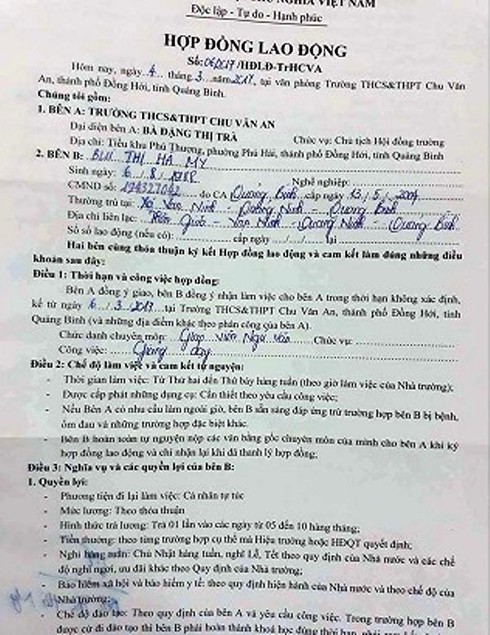 CHỦ NGHĨA VIỆT NAM
Độc lập - Tự do - Hạnh phúc
HỢP ĐỒNG LAO ĐỘNG
Số: 06/2017/HĐLĐ-TrHCVA
Hôm nay, ngày 4 tháng 3 năm 2017, tại văn phòng Trường THCS&THPT Chu Văn
An, thành phố Đồng Hới, tỉnh Quảng Bình.
Chúng tôi gồm:
1. BÊN A: TRƯỜNG THCS&THPT CHU VĂN AN
Đại diện bên A: BÀ ĐẶNG THỊ TRÀ Chức vụ: Chủ tịch Hội đồng trường
Địa chỉ: Tiểu khu Phú Thượng, phường Phú Hải, thành phố Đồng Hới, tỉnh Quảng Bình
2. BÊN B: BÙI THỊ HÀ MY
Sinh ngày: 6/8/1988 Nghề nghiệp:
CMND số: 194327042 do CA Quảng Bình cấp ngày 13/5/2004
Thường trú tại: Xã Vạn Ninh - Quảng Ninh - Quảng Bình
Địa chỉ liên lạc: - Vạn Ninh - Quảng Ninh - Quảng Bình
Số sổ lao động (nếu có): cấp ngày / / tại
Hai bên cùng thỏa thuận ký kết Hợp đồng lao động và cam kết làm đúng những điều
khoản sau đây:
Điều 1: Thời hạn và công việc hợp đồng:
Bên A đồng ý giao, bên B đồng ý nhận làm việc cho bên A trong thời hạn không xác định,
kể từ ngày 6/3/2017 tại Trường THCS&THPT Chu Văn An, thành phố Đồng Hới, tỉnh
Quảng Bình (và những địa điểm khác theo phân công của bên A).
Chức danh chuyên môn: Giáo viên Ngữ văn Chức vụ:
Công việc: Giảng dạy
Điều 2: Chế độ làm việc và cam kết tự nguyện:
- Thời gian làm việc: Từ Thứ hai đến Thứ bảy hàng tuần (theo giờ làm việc của Nhà trường);
- Được cấp phát những dụng cụ: Cần thiết theo yêu cầu công việc;
- Nếu Bên A có nhu cầu làm ngoài giờ, bên B sẵn sàng đáp ứng trừ trường hợp bên B bị bệnh,
ốm đau và những trường hợp đặc biệt khác.
- Bên B hoàn toàn tự nguyện nộp các văn bằng gốc chuyên môn của mình cho bên A khi ký
hợp đồng lao động và chỉ nhận lại khi đã thanh lý hợp đồng;
Điều 3: Nghĩa vụ và các quyền lợi của bên B:
1. Quyền lợi:
- Phương tiện đi lại làm việc: Cá nhân tự túc
- Mức lương: Theo thỏa thuận
- Hình thức trả lương: Trả 01 lần vào các ngày từ 05 đến 10 hàng tháng;
- Tiền thưởng: theo từng trường hợp cụ thể mà Hiệu trưởng hoặc HĐQT quyết định;
- Nghỉ hàng tuần: Chủ Nhật hàng tuần, nghỉ Lễ, Tết theo quy định của Nhà nước và các chế
độ nghỉ ngơi, ưu đãi khác theo Quy định của Nhà trường;
- Bảo hiểm xã hội và bảo hiểm y tế: theo quy định hiện hành của Nhà nước và theo chế độ của
Nhà trường;
- Chế độ đào tạo: Theo quy định của bên A và yêu cầu công việc. Trong trường hợp bên B
được cử đi đào tạo thì bên B phải hoàn thành khoá học đúng thời hạn, phải